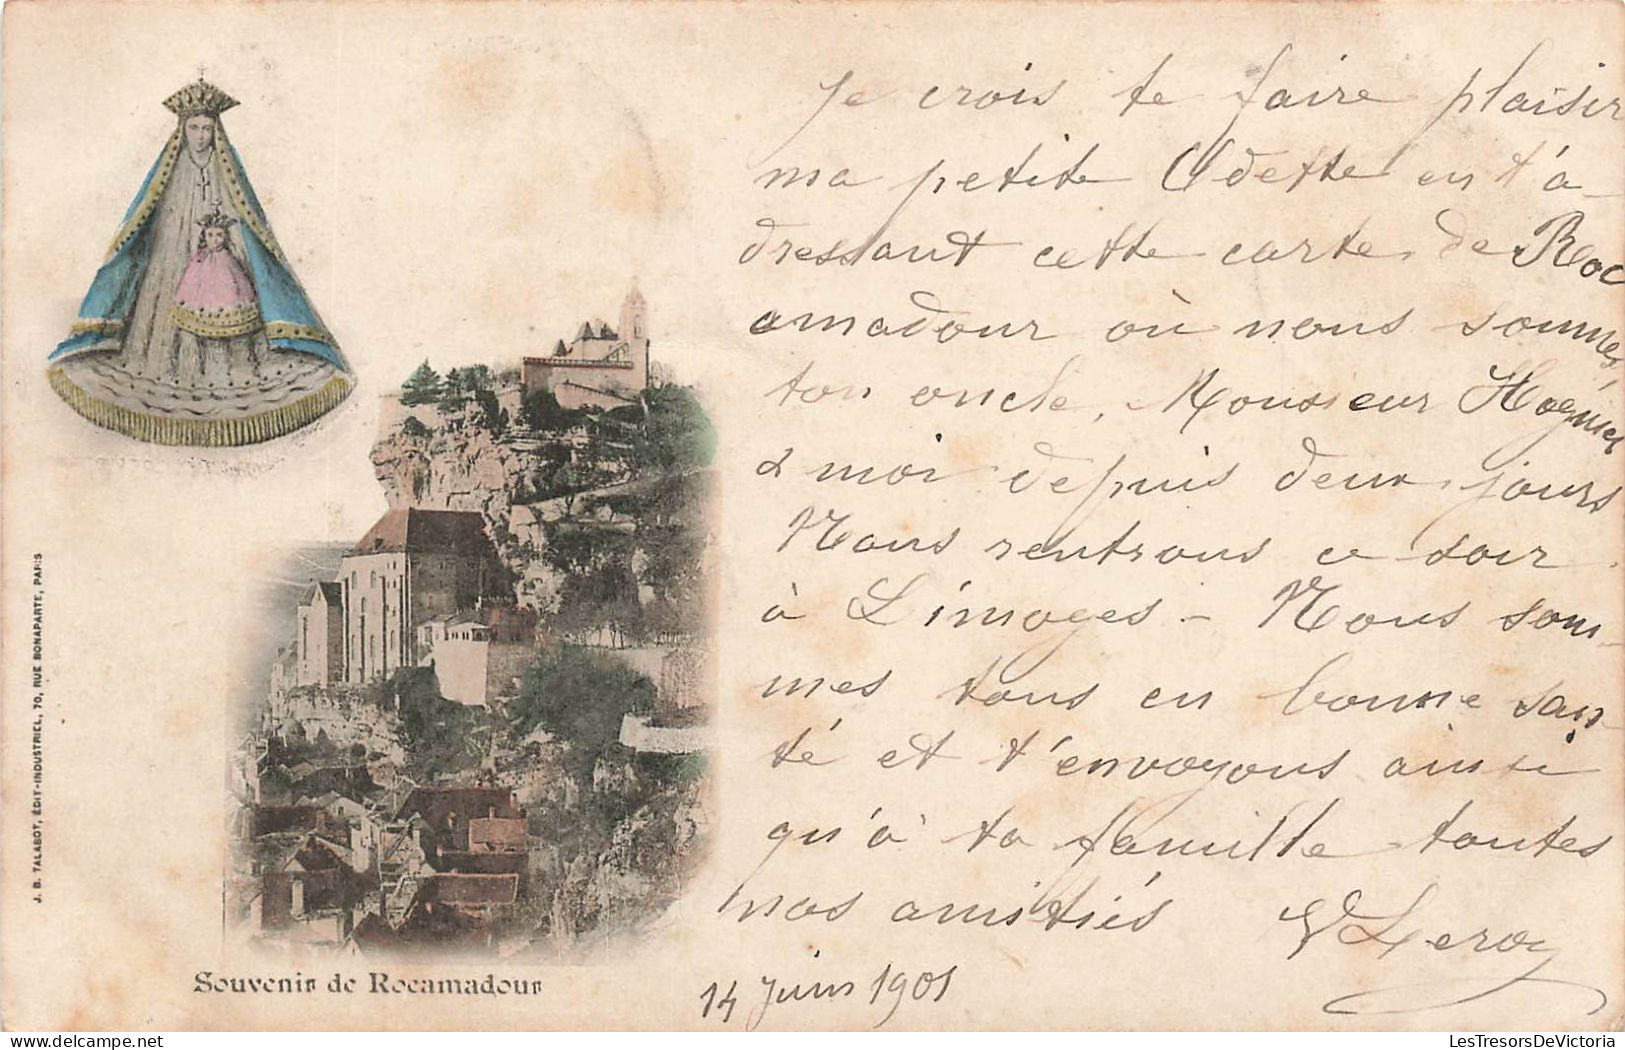 Je crois te faire plaisir
ma petite Odette en t'a-
dressant cette carte de Roc
amadour où nous sommes
ton oncle, Monsieur
& moi depuis deux jours
Nous rentrons ce soir
à Limoges - Nous som-
mes tous en bonne san-
té et t'envoyons ainsi
qu'à ta famille toutes
nos amitiés Leroy
14 Juin 1901
Souvenir de Rocamadour
J. B. TALABOT, ÉDIT-INDUSTRIEL, 70, RUE BONAPARTE, PARIS
LesTresorsDeVictoria